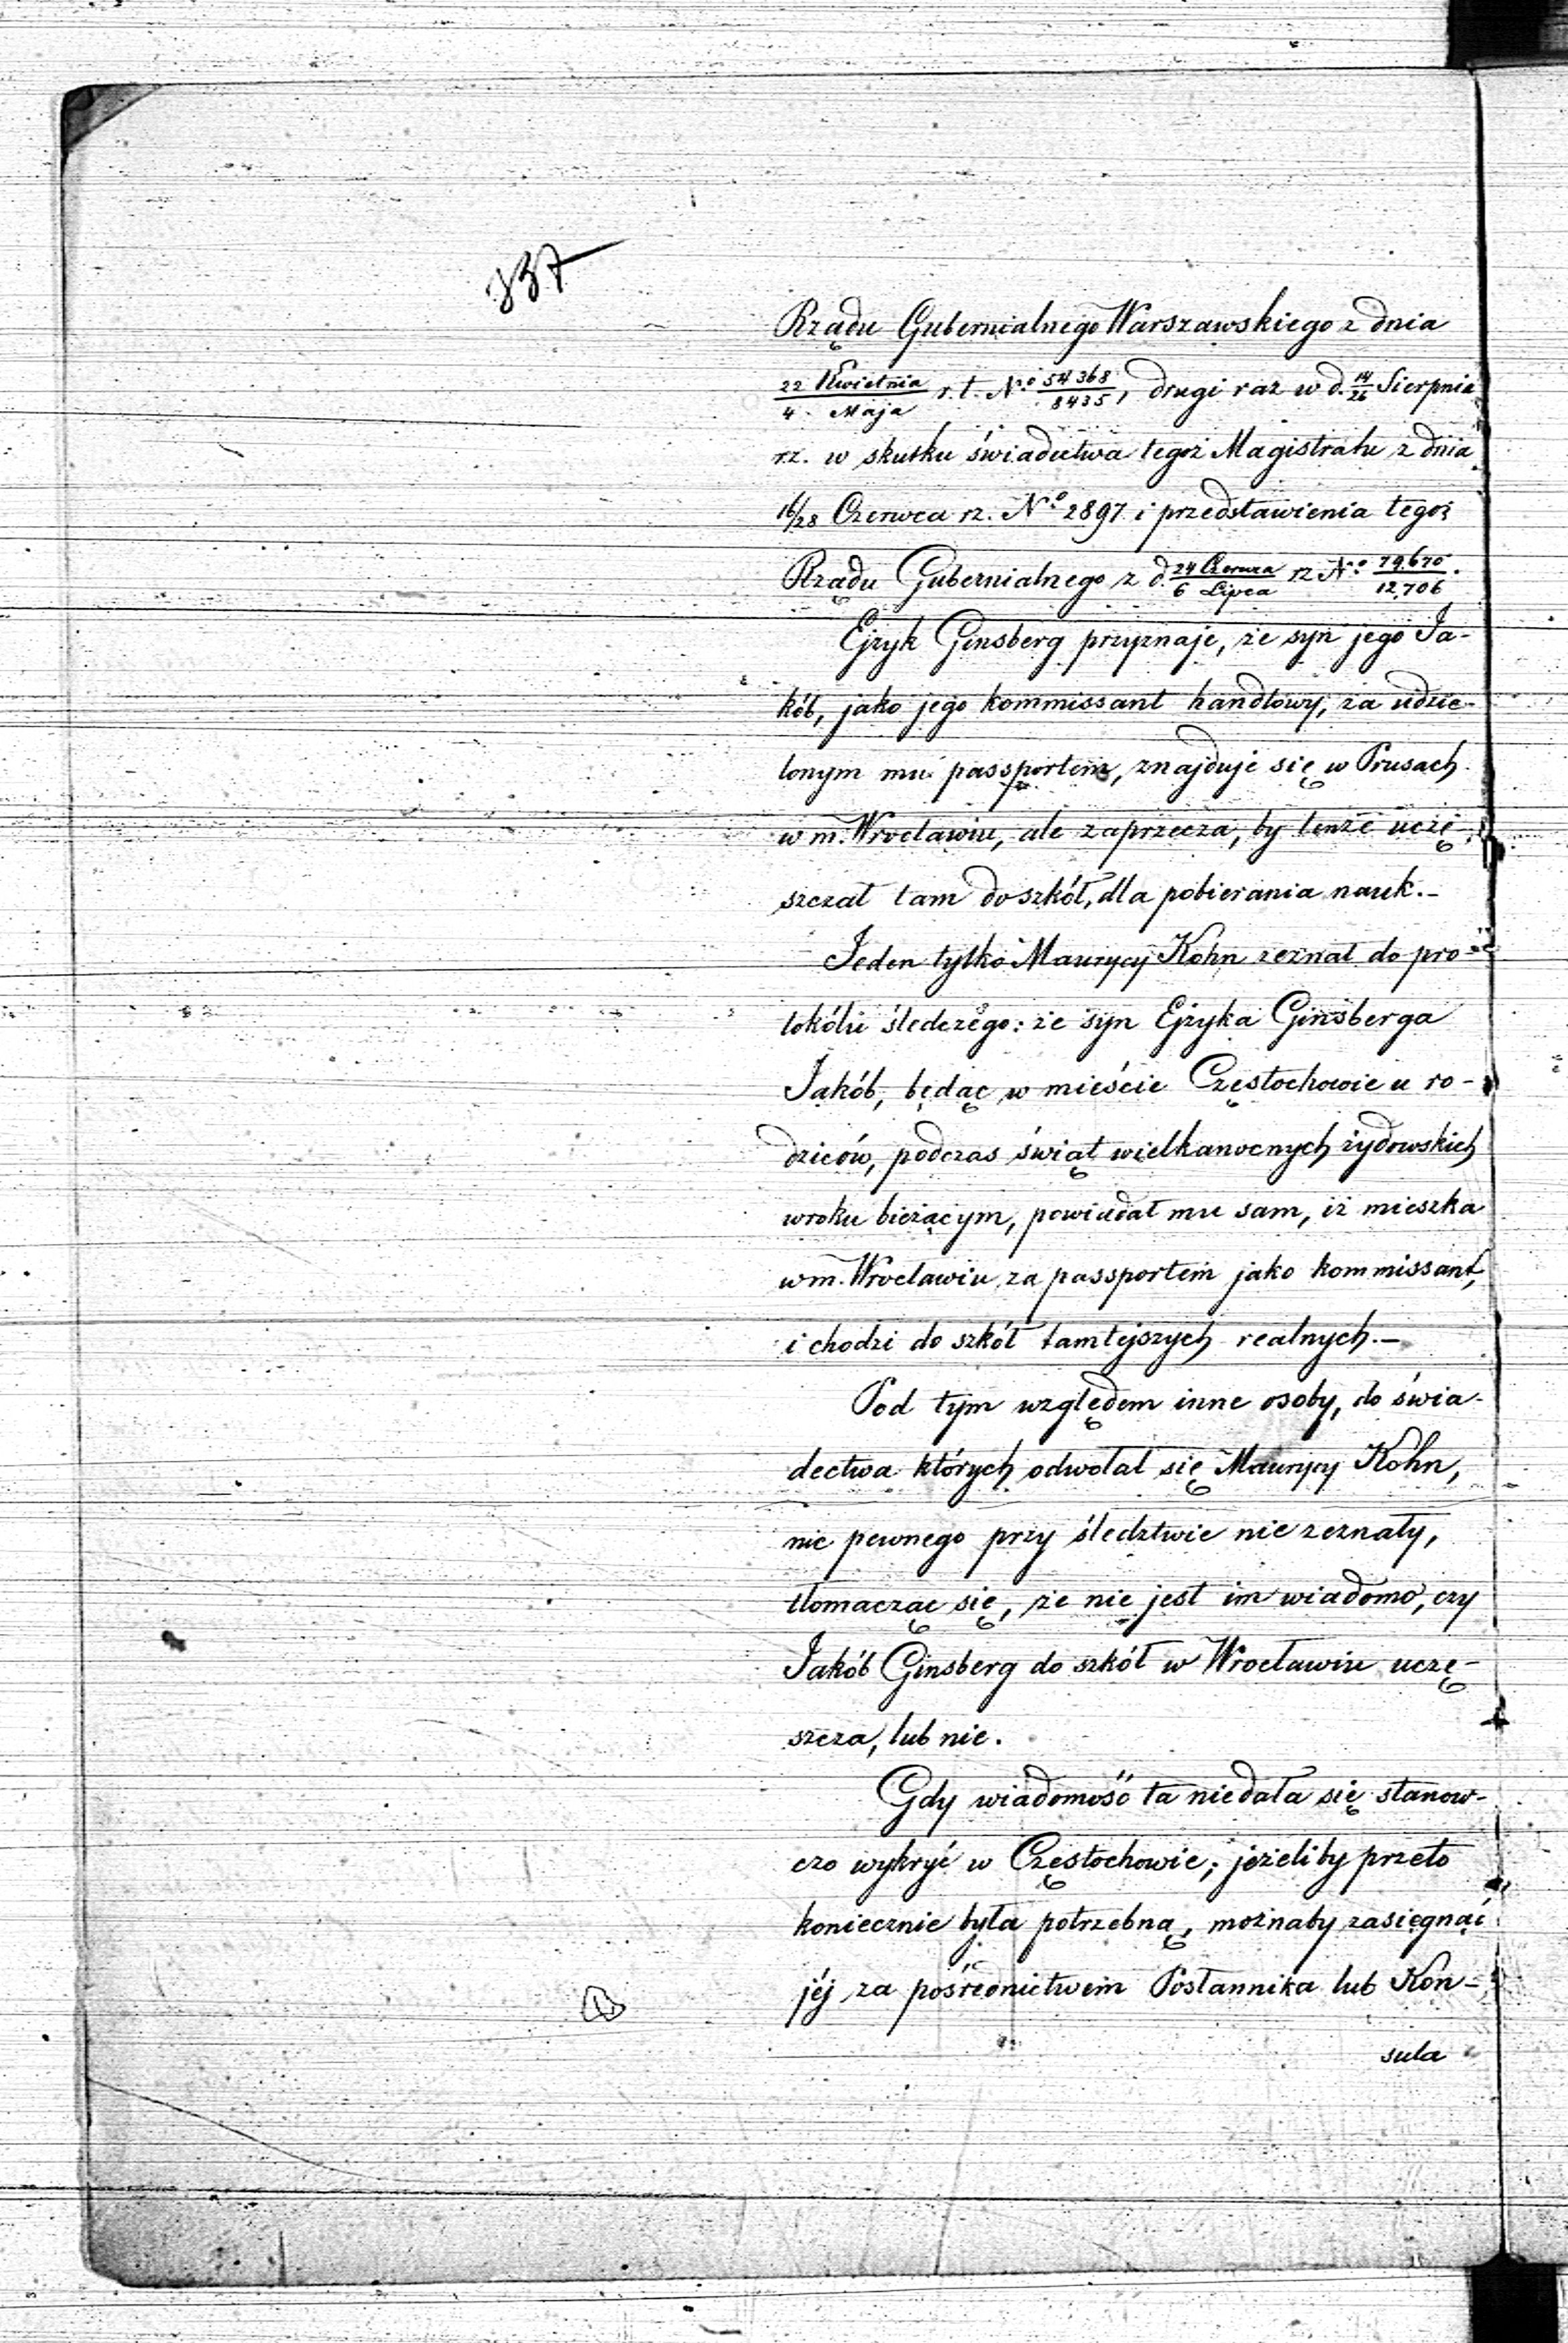 337
Rządu Gubernialnego Warszawskiego z dnia
22 Kwietnia / 4 Maja r.t. N.o 54368/8435, drugi raz w d. 14/26 Sierpnia
r.z. w skutku świadectwa tegoż Magistratu z dnia
16/28 Czerwca rz. N.o 2897 i przedstawienia tegoż
Rządu Gubernialnego z d. 24 Czerwca / 6 Lipca rz N.o 79.670/12,706.
Ejzyk Ginsberg przyznaje, że syn jego Ja-
kób, jako jego kommissant handlowy, za udzie-
lonym mu passportem, znajduje się w Prusach
w m. Wrocławiu, ale zaprzecza, by tenże uczę-
szczał tam do szkół, dla pobierania nauk.-
Jeden tylko Maurycy Kohn zeznał do pro-
tokółu śledczego: że syn Ejzyka Ginsberga
Jakób, będąc w mieście Częstochowie u ro-
dziców, podczas świąt wielkanocnych żydowskich
w roku bieżącym, powiadał mu sam, iż mieszka
w m. Wrocławiu za passportem jako kommissant,
i chodzi do szkół tamtejszych realnych.—
Pod tym względem inne osoby, do świa-
dectwa których odwołał się Maurycy Kohn,
nic pewnego przy śledztwie nie zeznały,
tłomacząc się, że nie jest im wiadomo, czy
Jakób Ginsberg do szkół w Wrocławiu uczę-
szcza, lub nie.
Gdy wiadomość ta niedała się stanow-
czo wykryć w Częstochowie; jeżeliby przeto
koniecznie była potrzebną, możnaby zasięgnąć
jéj za pośrednictwem Posłannika lub Kon-
sula